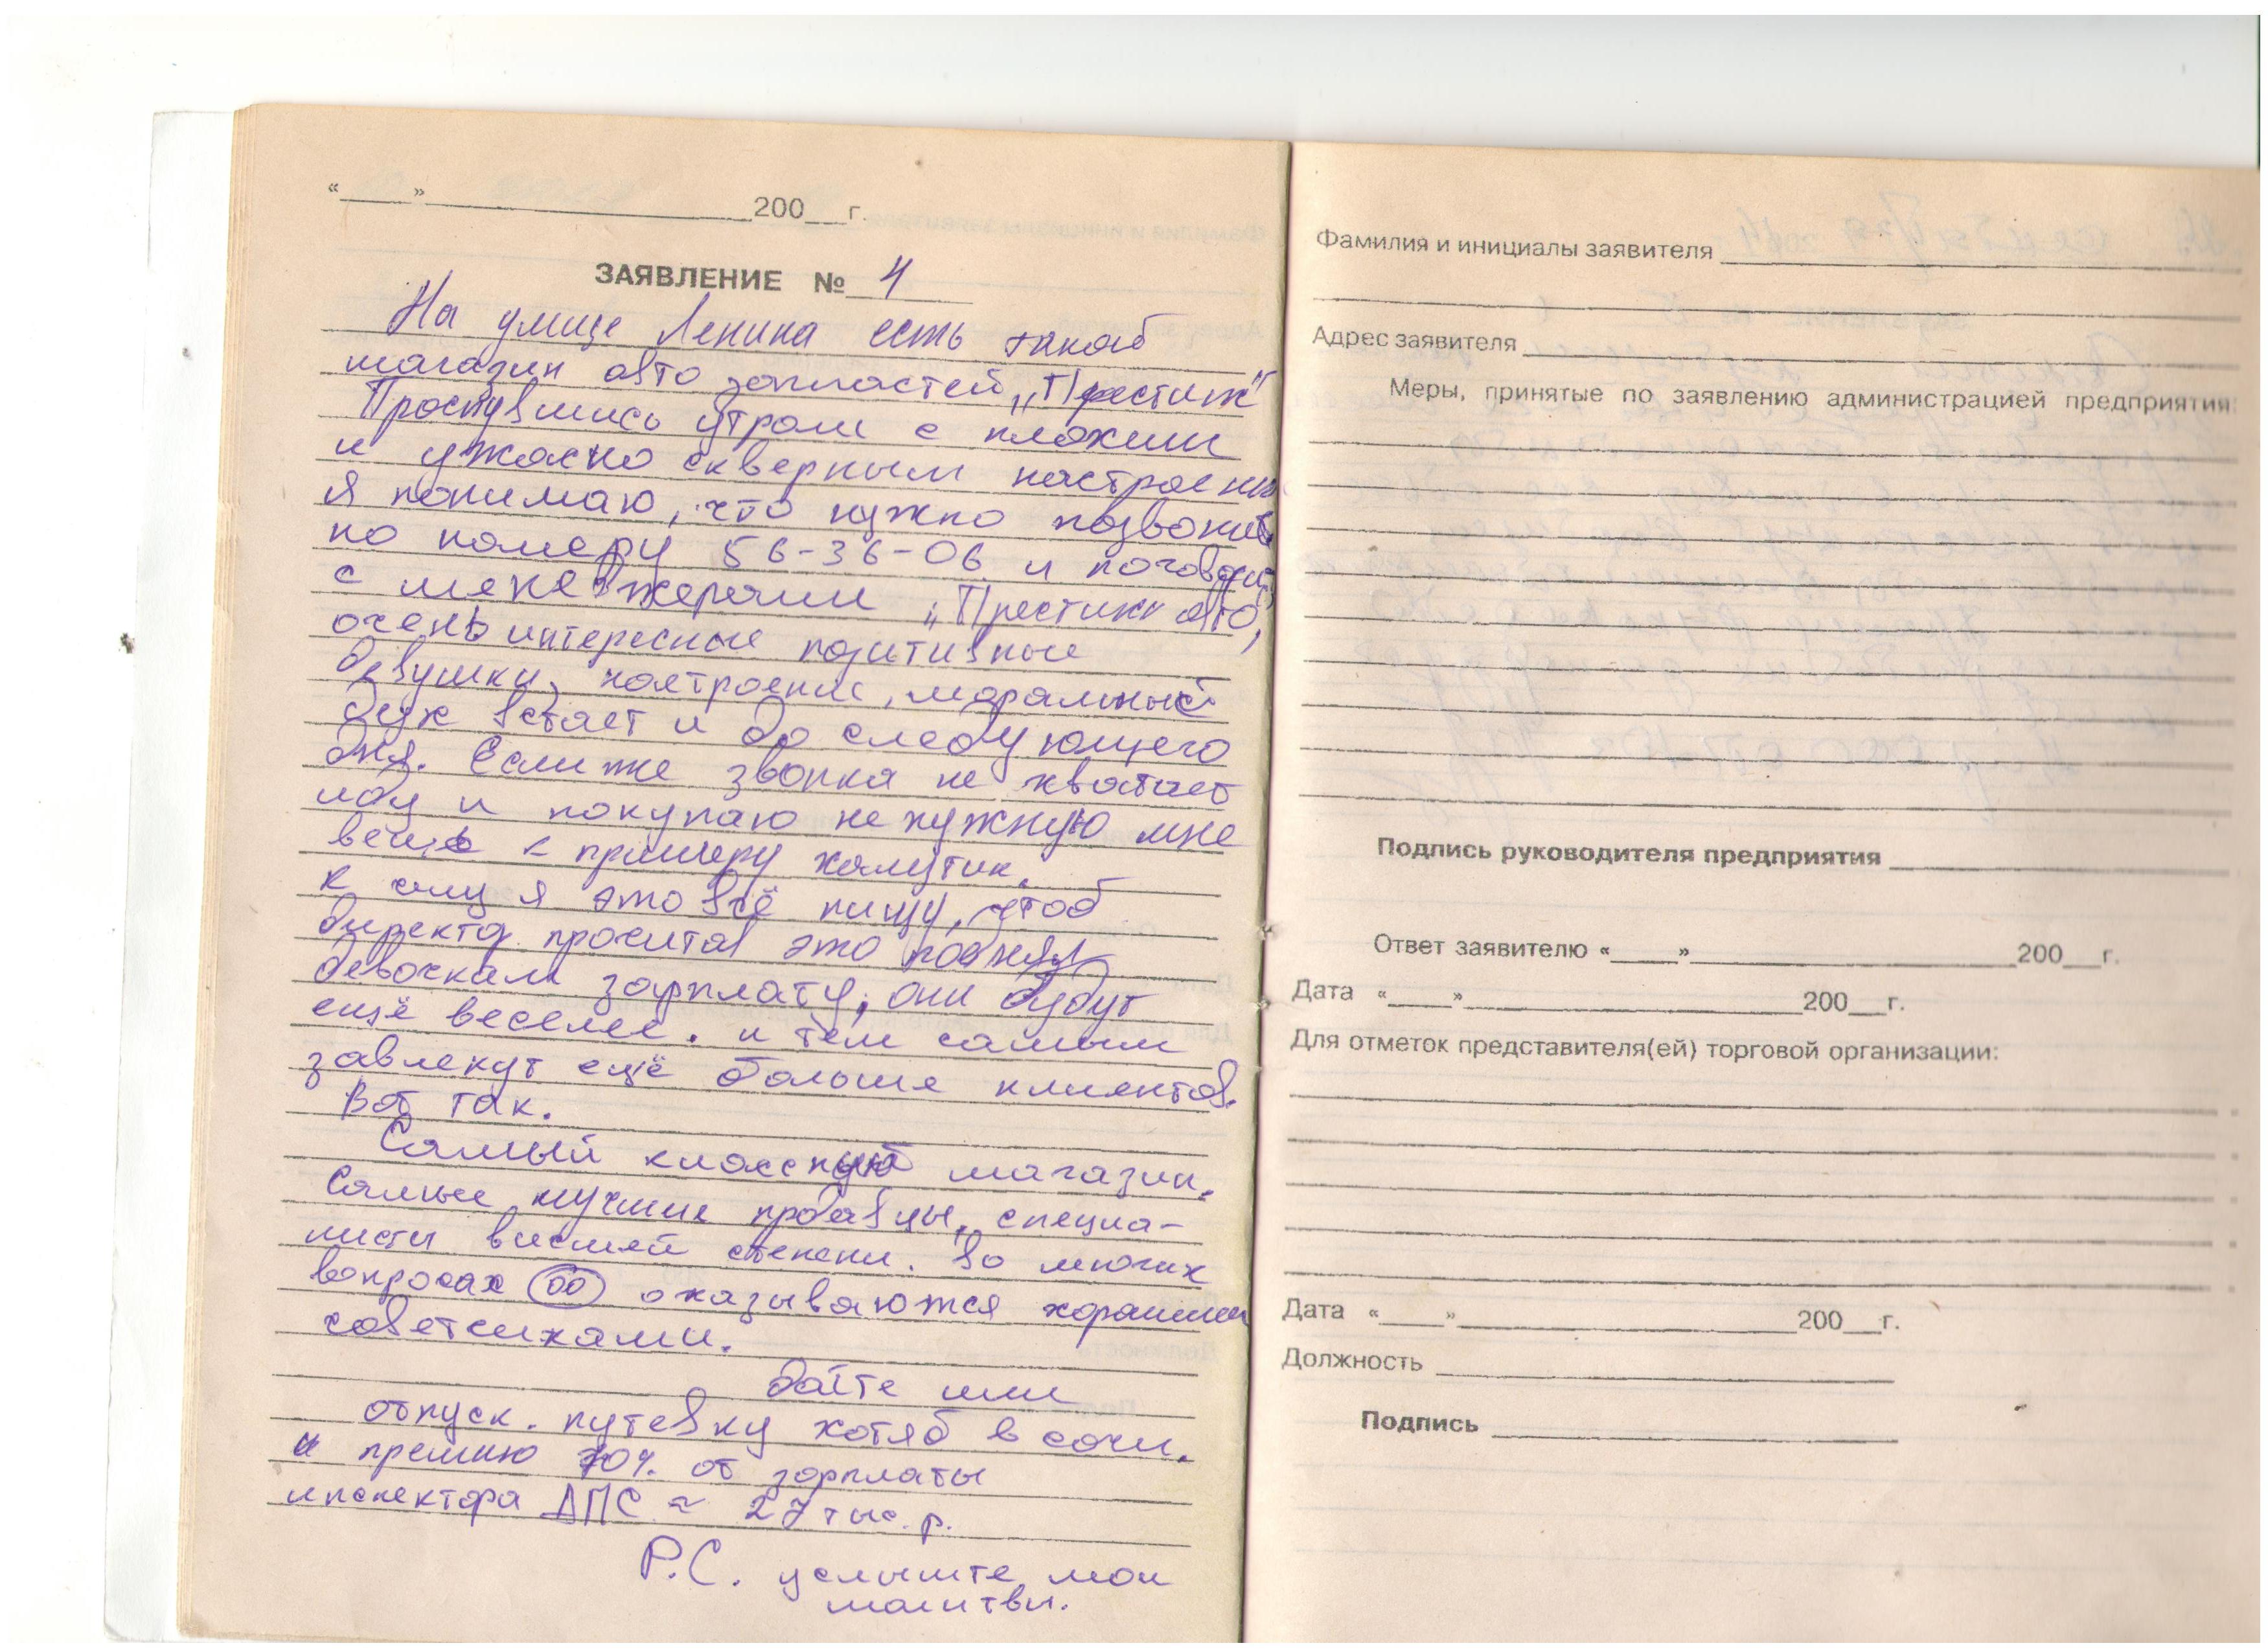 «____»______________200__г.
ЗАЯВЛЕНИЕ № 4
На улице Ленина есть такой
магазин авто запчастей „Престиж"
Проснувшись утром с плохим
и ужасно скверным настроением
я понимаю, что нужно позвонить
по номеру 56-36-06 и поговорить
с менеджерами „Престиж авто",
очень интересные позитивные
девушки, настроение, моральный
дух встает и до следующего
дня. Если же звонка не хватает
иду и покупаю не нужную мне
вещь к примеру хомутик.
К чему я это всё пишу, чтоб
директор прочитав это поднял
девочкам зарплату, они будут
ещё веселее. и тем самым
завлекут ещё больше клиентов.
Вот так.
Самый классный магазин.
Самые лучшие продавцы, специа-
листы высшей степени. Во многих
вопросах оо оказываются хорошими
советчиками.
дайте им
отпуск. путевку хотяб в сочи.
и премию 70% от зарплаты
инспектора ДПС ≈ 27 тыс. р.
P.C. услыште мои
молитвы.
Фамилия и инициалы заявителя ______________
Адрес заявителя ______________
Меры, принятые по заявлению администрацией предприятия:
Подпись руководителя предприятия ______________
Ответ заявителю «____»______________200__г.
Дата «____»______________200__г.
Для отметок представителя(ей) торговой организации:
Дата «____»______________200__г.
Должность ______________
Подпись ______________